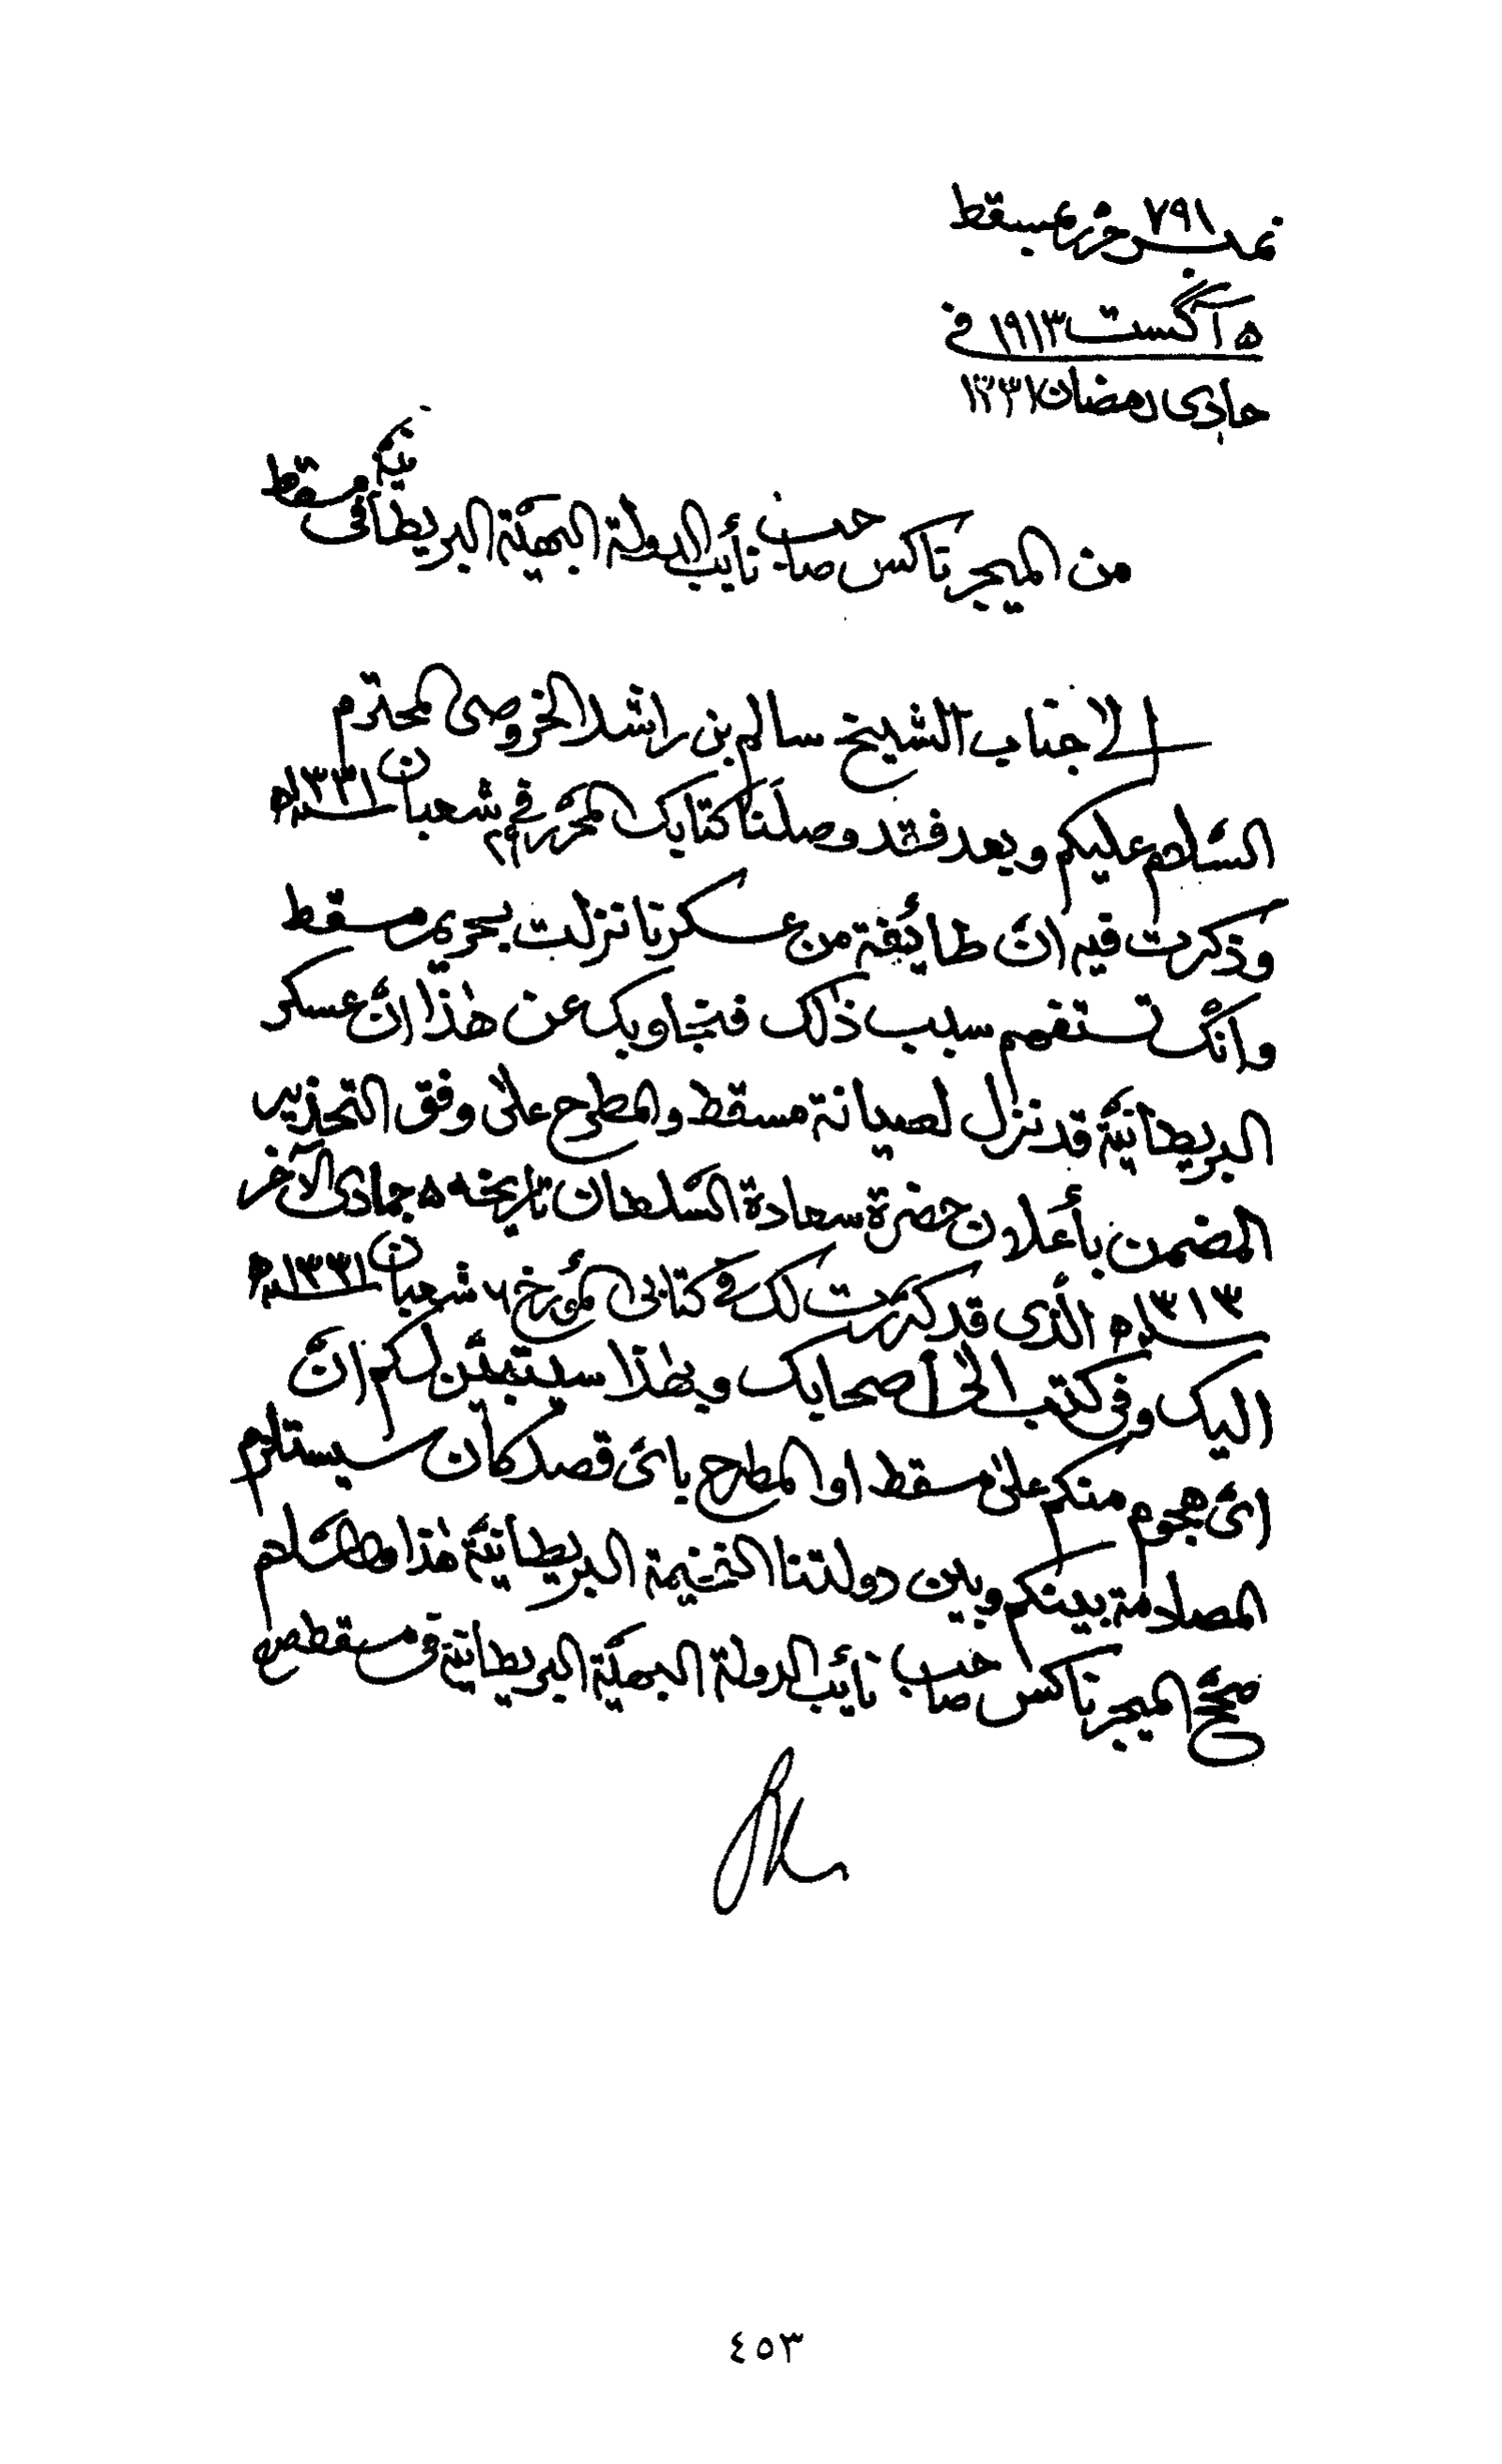 نمبر ٧٩١ مسقط
٥ آگست ١٩١٣ في
حادى رمضان ١٣٣١
من الميجر ناكس صاحب نائب الدولة البهيّة البريطانيّة في مسقط
الا جناب الشيخ سالم بن راشد الخروصى المحترم
السّلام عليكم وبعد فقد وصلنا كتابك المحرّر في ٢٩ شعبان سنة ١٣٣١ھ
وذكرت فيه انّ طائفة من عسكرنا نزلت بحريم مسقط
وانّك تستفهم سبب ذٰلك فنجاوبك عن هٰذا انّ عسكر
البريطانيّة قد نزل لصيانة مسقط والمطرح علىٰ وفق التحذير
المضمن بأعلان حضرة سعادة السّلطان تاريخه ٥ جمادى الآخر
سنة ١٣١٣ھ الّذى قد كتبت لك في كتابى المؤرخ ٦ شعبان سنة ١٣٣١ھ
اليك وفى كتب الىٰ أصحابك وبهٰذا سيتبيّن لكم انّ
اىّ هجوم منكم علىٰ مسقط او المطرح باىّ قصد كان سيستلزم
المصادمة بينكم وبين دولتنا الفخيمة البريطانيّة هٰذا والسّلام
صحّ الميجر ناكس صاحب نائب الدولة البهيّة البريطانيّة فى مسقط صح
٤٥٣